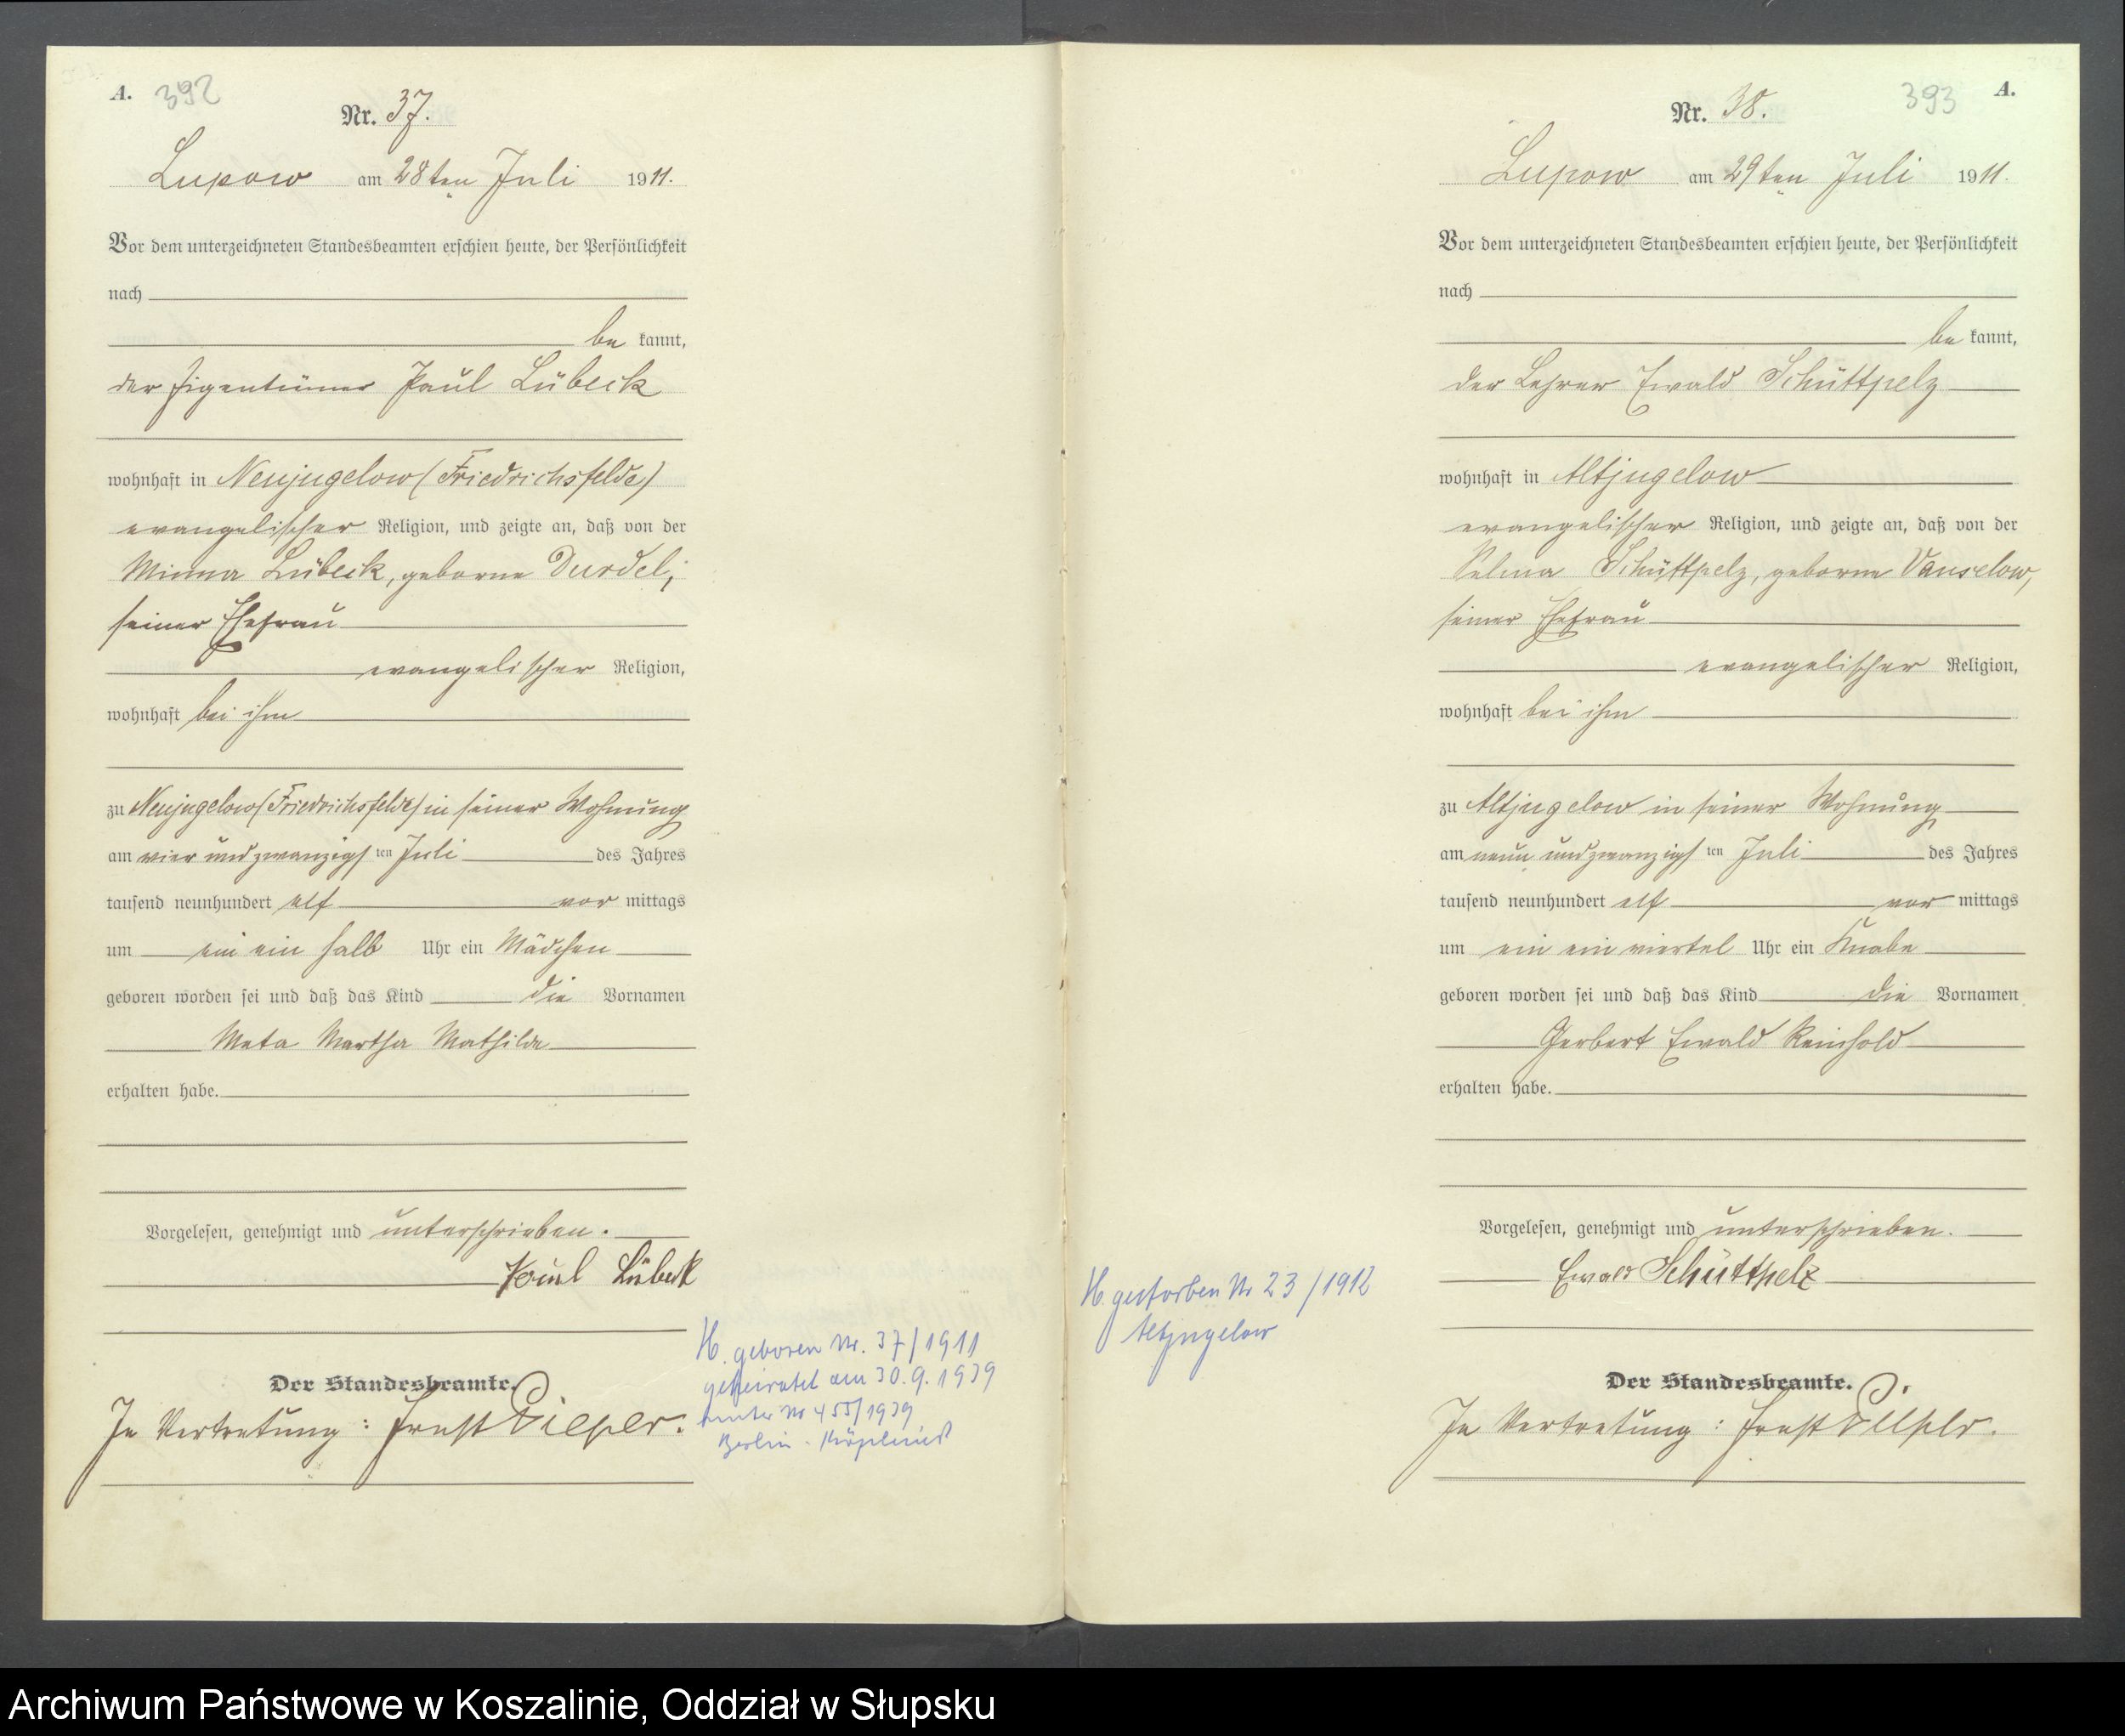 A. 392
Nr. 37.
Lupow am 28ten Juli 1911.
Vor dem unterzeichneten Standesbeamten erschien heute, der Persönlichkeit
nach
be kannt,
der Eigentümer Paul Lübeck
wohnhaft in Neujugelow (Friedrichsfelde)
evangelischer Religion, und zeigte an, daß von der
Minna Lübeck, geborne Durdel,
seiner Ehefrau
evangelischer Religion,
wohnhaft bei ihm
zu Neujugelow (Friedrichsfelde) in seiner Wohnung
am vier und zwanzigsten Juli des Jahres
tausend neunhundert elf vor mittags
um ein ein halb Uhr ein Mädchen
geboren worden sei und daß das Kind die Vornamen
Meta Martha Mathilde
erhalten habe.
Vorgelesen, genehmigt und unterschrieben.
Paul Lübeck
Der Standesbeamte.
In Vertretung: Ernst Pieper.
H. geboren Nr. 37/1911
geheiratet am 30.9.1939
unter Nr 455/1939
Berlin-Köpenick
393 A.
Nr. 38.
Lupow am 29ten Juli 1911.
Vor dem unterzeichneten Standesbeamten erschien heute, der Persönlichkeit
nach
be kannt,
der Lehrer Ewald Schüttpelz
wohnhaft in Altjugelow
evangelischer Religion, und zeigte an, daß von der
Selma Schüttpelz, geborne Vanselow,
seiner Ehefrau
evangelischer Religion,
wohnhaft bei ihm
zu Altjugelow in seiner Wohnung
am neun und zwanzigsten Juli des Jahres
tausend neunhundert elf vor mittags
um ein ein viertel Uhr ein Knabe
geboren worden sei und daß das Kind die Vornamen
Gerbert Ewald Reinhold
erhalten habe.
Vorgelesen, genehmigt und unterschrieben.
Ewald Schüttpelz
H. gestorben Nr 23/1912
Altjugelow
Der Standesbeamte.
In Vertretung: Ernst Pieper.
Archiwum Państwowe w Koszalinie, Oddział w Słupsku